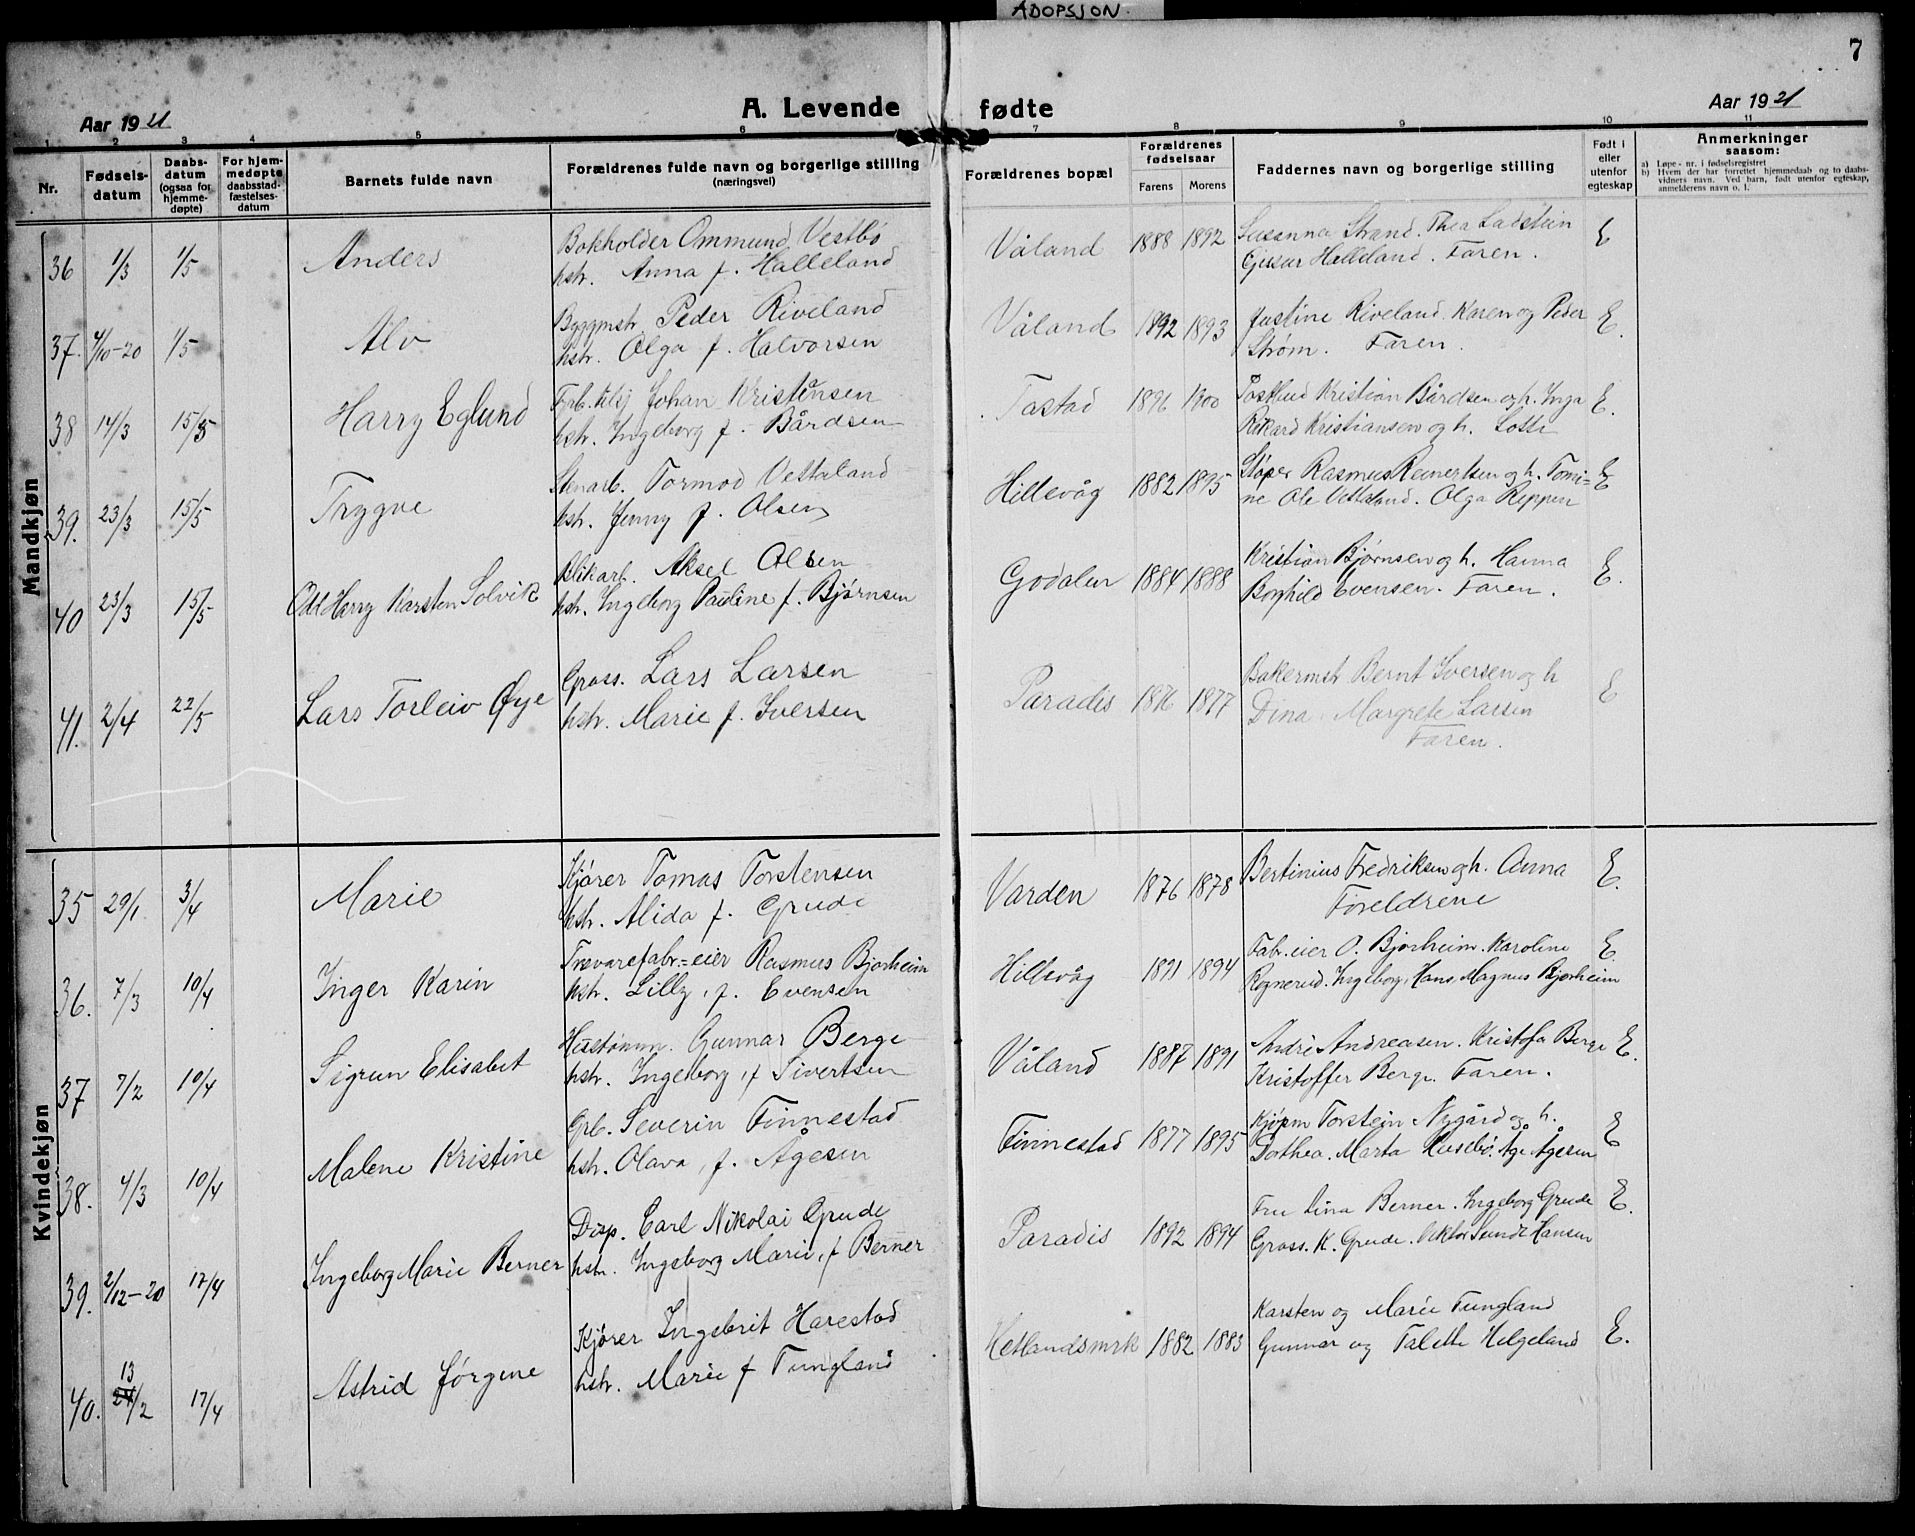 ADOPSJON.
7
Aar 1921
A. Levende fødte
Aar 1921
1 2 3 4 5 6 7 8 9 10 11
Nr.
Fødsels-
datum
Daabs-
datum
(ogsaa for
hjemme-
døpte)
For hjem-
medøpte
daabsstad-
fæstelses-
datum
Barnets fulde navn
Forældrenes fulde navn og borgerlige stilling
(næringsvei)
Forældrenes bopæl
Forældrenes
fødselsaar
Farens Morens
Faddernes navn og borgerlige stilling
Født i
eller
utenfor
egteskap
Anmerkninger
saasom:
a) Løpe-nr. i fødselsregistret
b) Hvem der har forrettet hjemmedaab og to daabs-
vidners navn. Ved barn, født utenfor egteskap,
anmelderens navn o. l.
Mandkjøn
36 1/3 1/5 Anders
Bokholder Ommund Vestbø
hstr. Anna f. Halleland
Våland 1888 1892
Susanna Strand. Thea Ladstein
Gjusur Halleland. Faren.
E
37. 4/10-20 1/5 Alv
Byggmstr. Peder Riveland
hstr. Olga f. Halvorsen
Våland 1892 1893
Justine Riveland. Karen og Peder
Strøm. Faren.
E.
38 14/3 15/5 Harry Eglund
Johan Kristensen
hstr. Ingeborg f. Bårdsen
Tastad 1896 1900
Postbud Kristian Bårdsen og h. Inga
Rikard Kristiansen og h. Lotti
E.
39. 23/3 15/5 Trygve
Stenarb. Tormod Vettaland
hstr. Jenny f. Olsen
Hillevåg 1882 1895
Støper Rasmus Reinertsen og h. Tomi=
ne Ole Vettaland. Olga Reppen
E
40 23/3 15/5 Odd Harry Karsten Solvik
Blikarb. Aksel Olsen
hstr. Ingeborg Pauline f. Bjørnsen
Godalen 1884 1888
Kristian Bjørnsen og h. Hanna
Borghild Evensen. Faren.
E.
41. 2/4 22/5 Lars Torleiv Øye
Gross. Lars Larsen
hstr. Marie f. Iversen
Paradis 1876 1877
Bakermstr Bernt Iversen og h
Dina. Margrete Larsen
Faren.
E
Kvindekjøn
35 29/1 3/4 Marie
Kjører Tomas Torstensen
hstr. Alida f. Grude
Varden 1876 1878
Bertinius Fredriksen og h. Anna
Foreldrene
E.
36. 7/3 10/4 Inger Karin
Trevarefabr.=eier Rasmus Bjorheim
hstr. Lilly, f. Evensen
Hillevåg 1891 1894
Fabr.eier O. Bjorheim. Karoline
Rognerud. Ingeborg, Hans, Magnus Bjorheim
E.
37 7/2 10/4 Sigrun Elisabet
Hustømm. Gunnar Berge
hstr. Ingeborg, f Sivertsen
Våland 1887 1891
Andre Andreasen. Kristofa Berge
Kristoffer Berge. Faren.
E.
38. 4/3 10/4 Malene Kristine
Grb. Severin Finnestad
hstr. Olava, f. Ågesen
Finnestad 1877 1895
Kjøpm Torstein Nygård og h.
Dorthea. Marta Husebø. Åge Ågesen
E
39. 2/12-20 17/4 Ingeborg Marie Berner
Disp. Carl Nikolai Grude
hstr. Ingeborg Marie, f Berner
Paradis 1892 1894
Fru Lina Berner. Ingeborg Grude
Gross. K. Grude. Viktor Sundt Hansen
E.
40. 13/2 17/4 Astrid Jørgine
Kjører Ingebrit Harestad
hstr. Marie f Tungland
Hetlandsmrk 1882 1883
Karsten og Marie Tungland
Gunnar og Talette Helgeland
E.